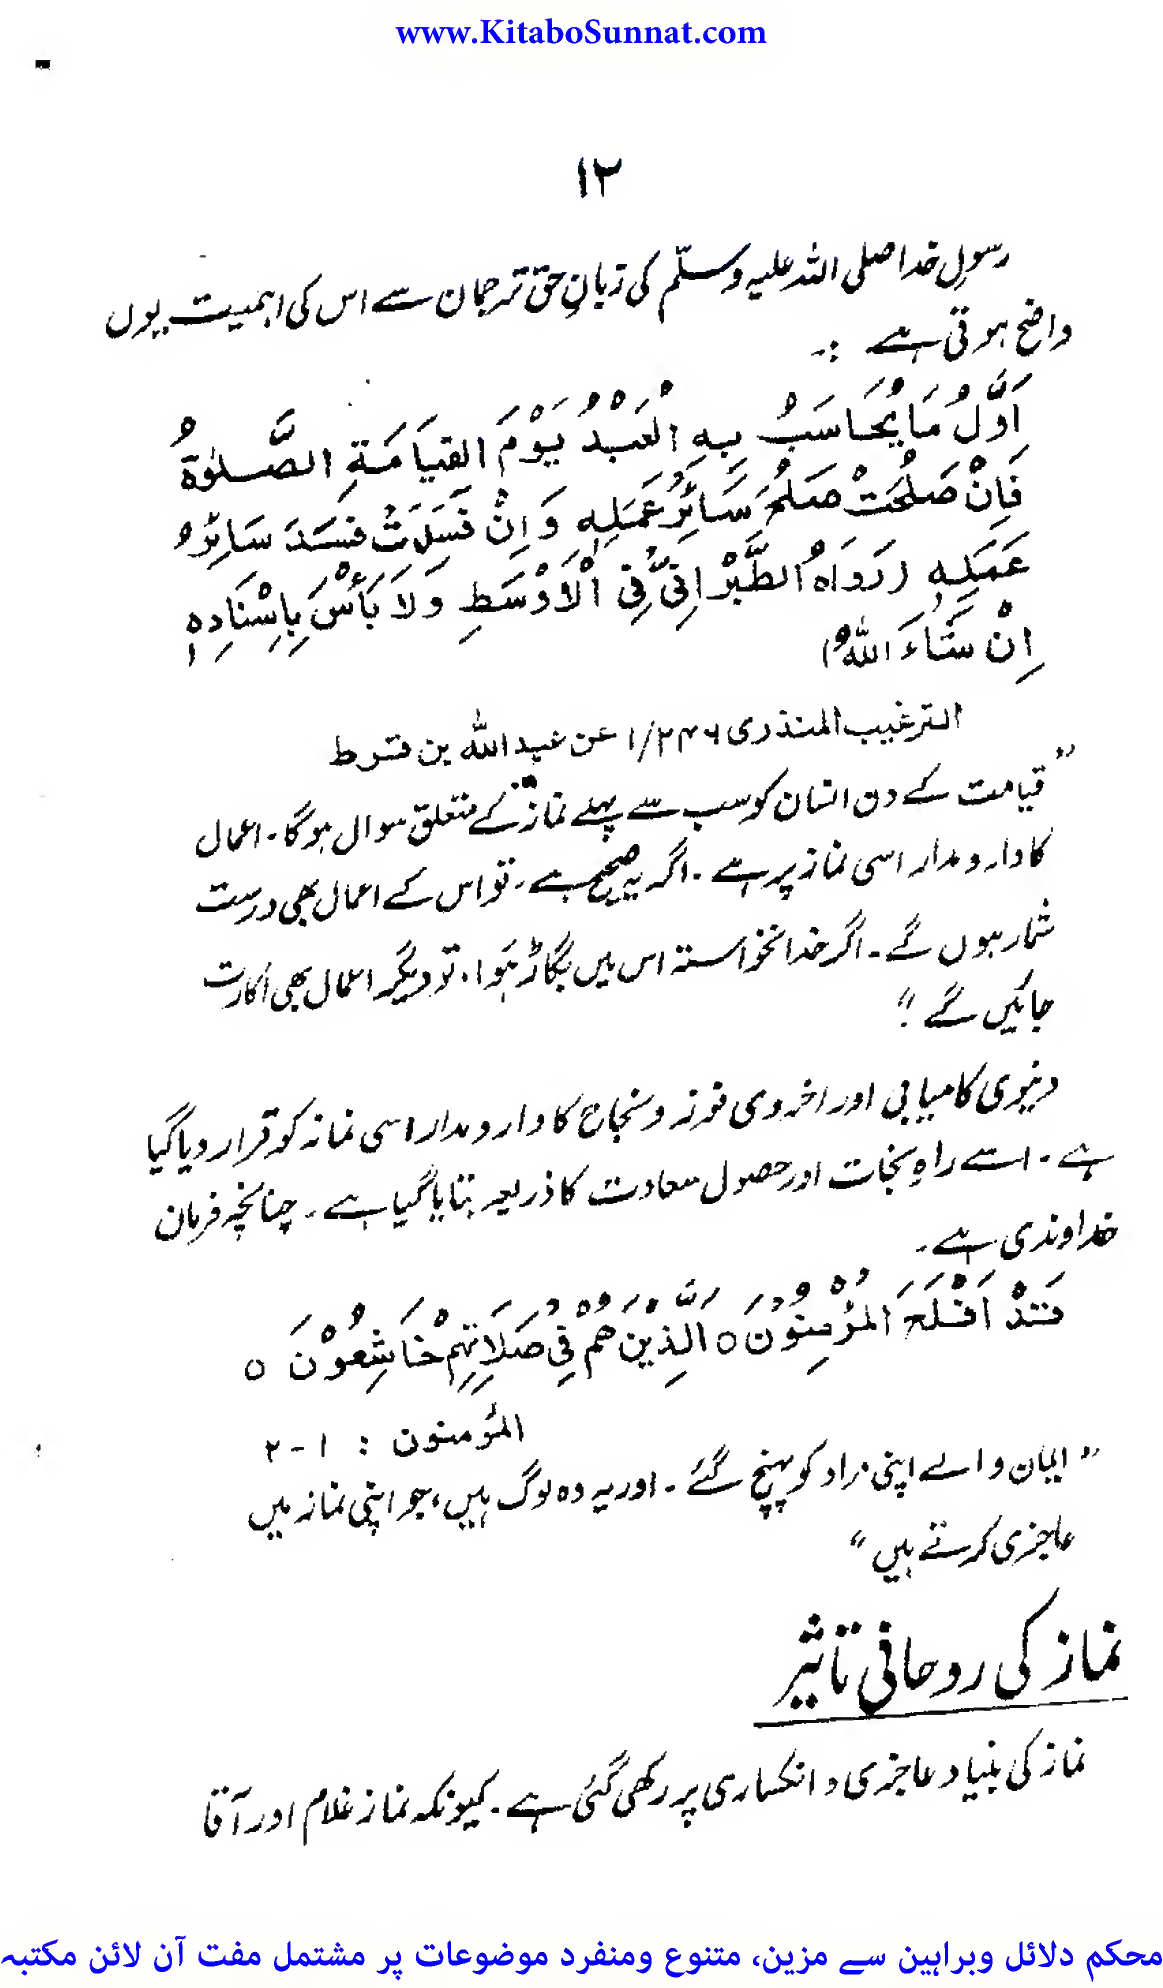 www.KitaboSunnat.com
۱۲
رسولِ خدا صلی اللہ علیہ وسلّم کی زبانِ حق ترجمان سے اس کی اہمیت یوں
واضح ہوتی ہے :۔
اَوَّلُ مَا یُحَاسَبُ بِہِ الْعَبْدُ یَوْمَ القِیَامَۃِ الصَّلٰوۃُ
فَاِنْ صَلُحَتْ صَلُحَ سَائِرُ عَمَلِہٖ وَاِنْ فَسَدَتْ فَسَدَ سَائِرُ
عَمَلِہٖ (رَوَاہُ الطَّبْرَانِیُّ فِی الْاَوْسَطِ وَلَا بَأْسَ بِاِسْنَادِہٖ
اِنْ شَاءَ اللّٰہُ)
الترغیب المنذری ۱/۲۴۶ عن عبداللہ بن قرط
"قیامت کے دن انسان کو سب سے پہلے نماز کے متعلق سوال ہوگا۔ اعمال
کا دارومدار اسی نماز پر ہے۔ اگر یہ صحیح ہے۔ تو اس کے اعمال بھی درست
شمار ہوں گے۔ اگر خدانخواستہ اس میں بگاڑ ہوا، تو دیگر اعمال بھی اکارت
جائیں گے"
دنیوی کامیابی اور اخروی فوز و نجاح کا دارومدار اسی نماز کو قرار دیا گیا
ہے۔ اسے راہِ نجات اور حصول سعادت کا ذریعہ بتایا گیا ہے۔ چنانچہ فرمان
خداوندی ہے۔
قَدْ اَفْلَحَ الْمُؤْمِنُوْنَ ۝ الَّذِیْنَ ھُمْ فِی صَلَاتِہِمْ خَاشِعُوْنَ ۝
المؤمنون : ۱-۲
"ایمان والے اپنی مراد کو پہنچ گئے۔ اور یہ وہ لوگ ہیں، جو اپنی نماز میں
عاجزی کرتے ہیں"
نماز کی روحانی تاثیر
نماز کی بنیاد عاجزی و انکساری پر رکھی گئی ہے۔ کیونکہ نماز غلام اور آقا
محکم دلائل وبراہین سے مزین، متنوع ومنفرد موضوعات پر مشتمل مفت آن لائن مکتبہ